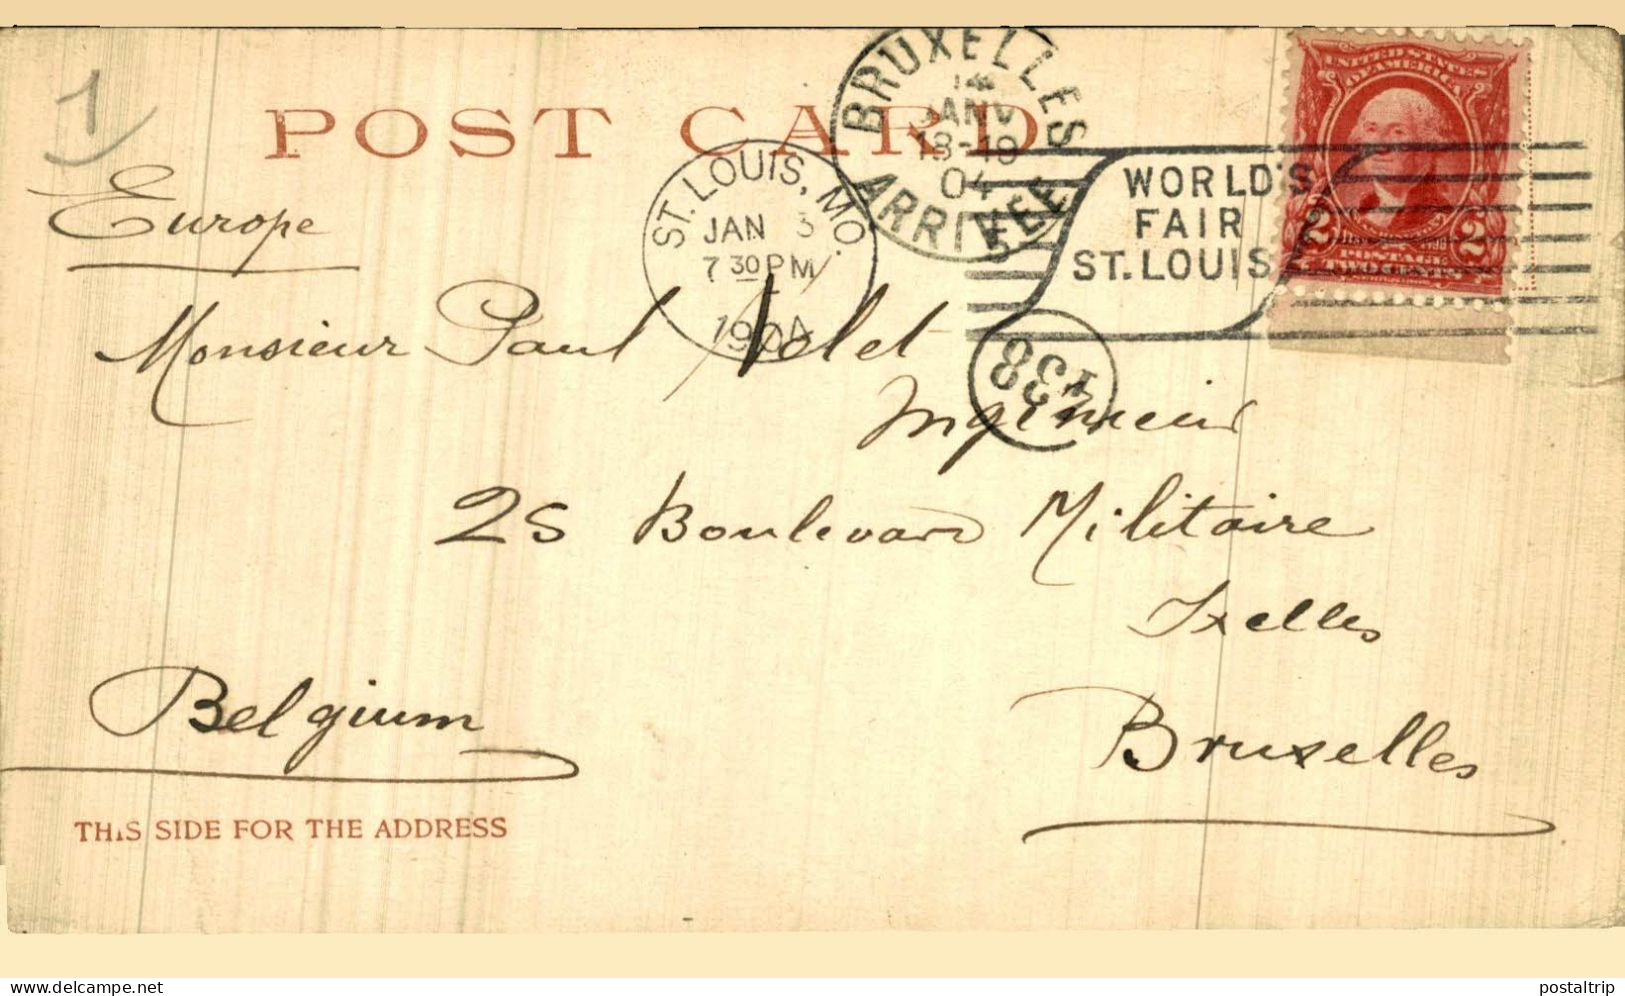 1)
POST CARD
BRUXELLES
14
JANV
18-19
04
ARRIVEE
ST. LOUIS, MO.
JAN 3
7 30 PM
1904
WORLD'S
FAIR
ST. LOUIS
5
UNITED STATES
OF AMERICA
2 2
POSTAGE
TWO CENTS
Europe
Monsieur Paul
Ingénieur
25 Boulevard Militaire
Ixelles
Bruxelles
Belgium
THIS SIDE FOR THE ADDRESS
www.delcampe.net
postaltrip